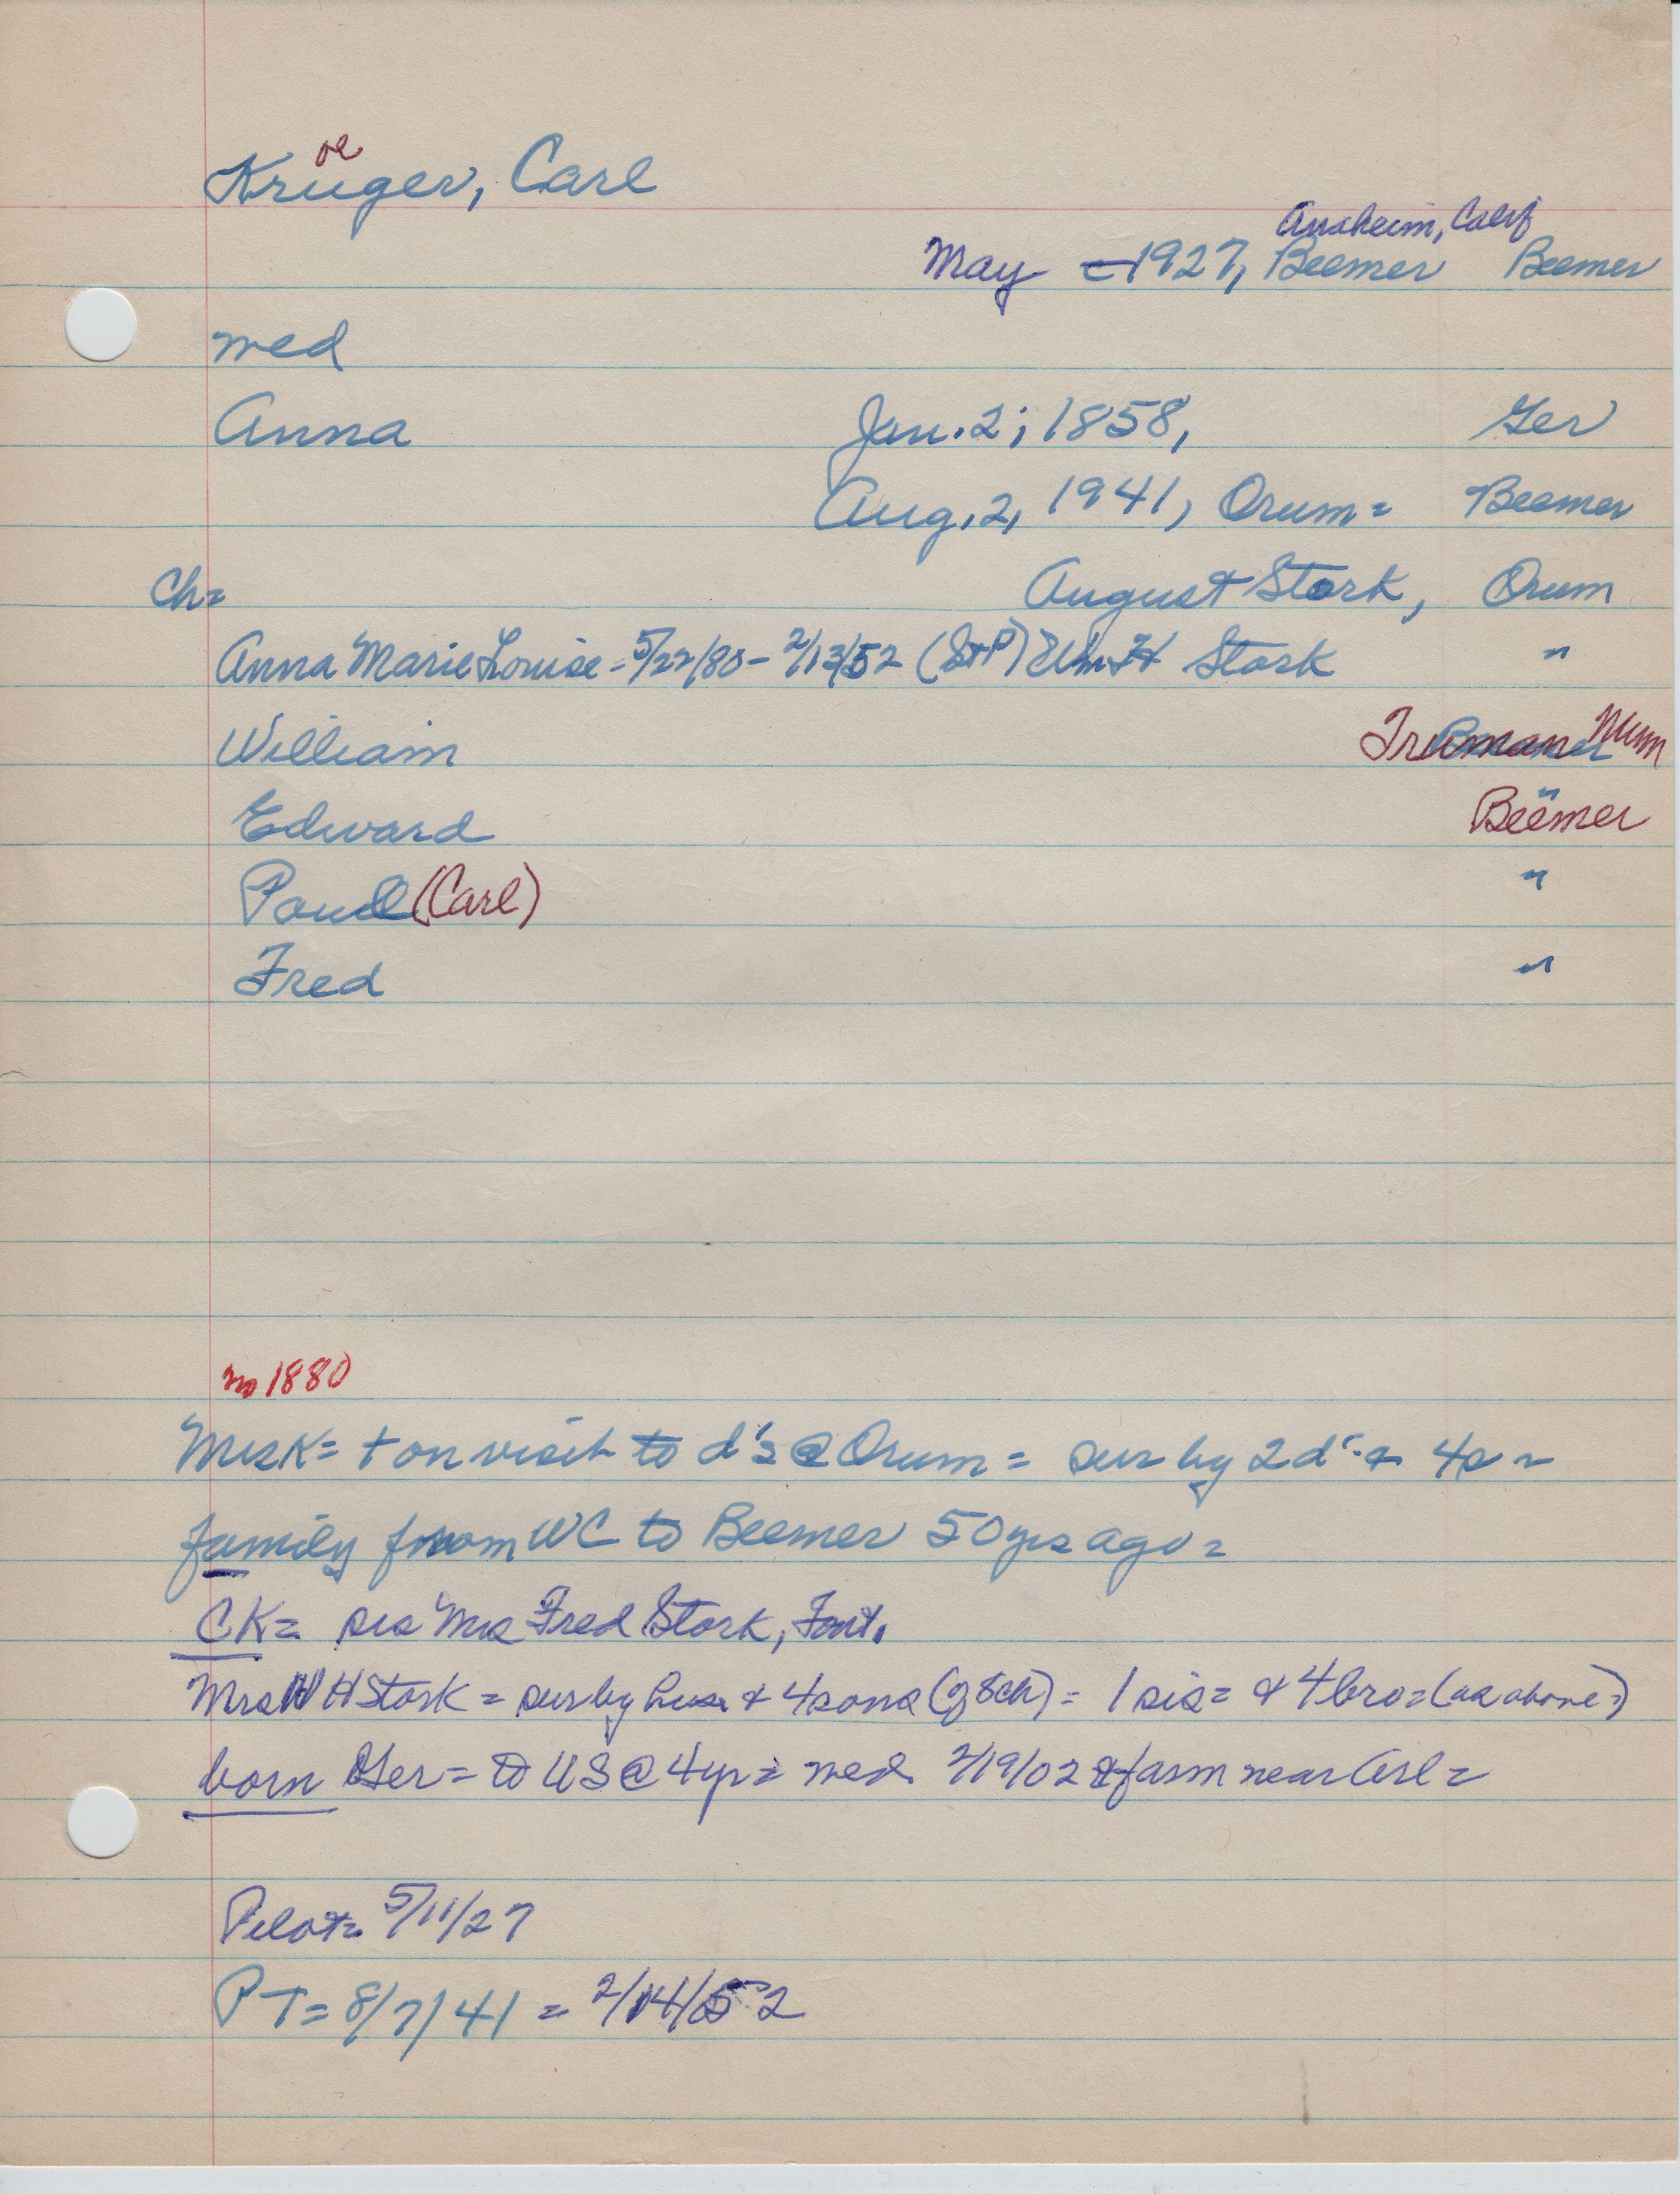 oe
Krüger, Carl
Anaheim, Calif
May - 1927, Beemer Beemer
med
Anna Jan. 2, 1858, Ger
Aug. 2, 1941, Orum = Beemer
Ch = August Stork, Orum
Anna Marie Louise - 5/22/80 - 2/13/52 (S+P) Wm H Stork "
William Truman Minn
Edward Beemer
Paul (Carl) "
Fred "
no 1880
Mrs K = + on visit to d's @ Orum = sur by 2 d's & 4 s =
family from WC to Beemer 50 yrs ago =
CK = sis Mrs Fred Stork, Font.
Mrs W H Stork = sur by hus & 4 sons (g 8 ch) = 1 sis = & 4 bro = (as above =)
born Ger = to US @ 4 yr = med 2/19/02 & farm near Arl =
Pilot = 5/11/27
PT = 8/7/41 = 2/14/52